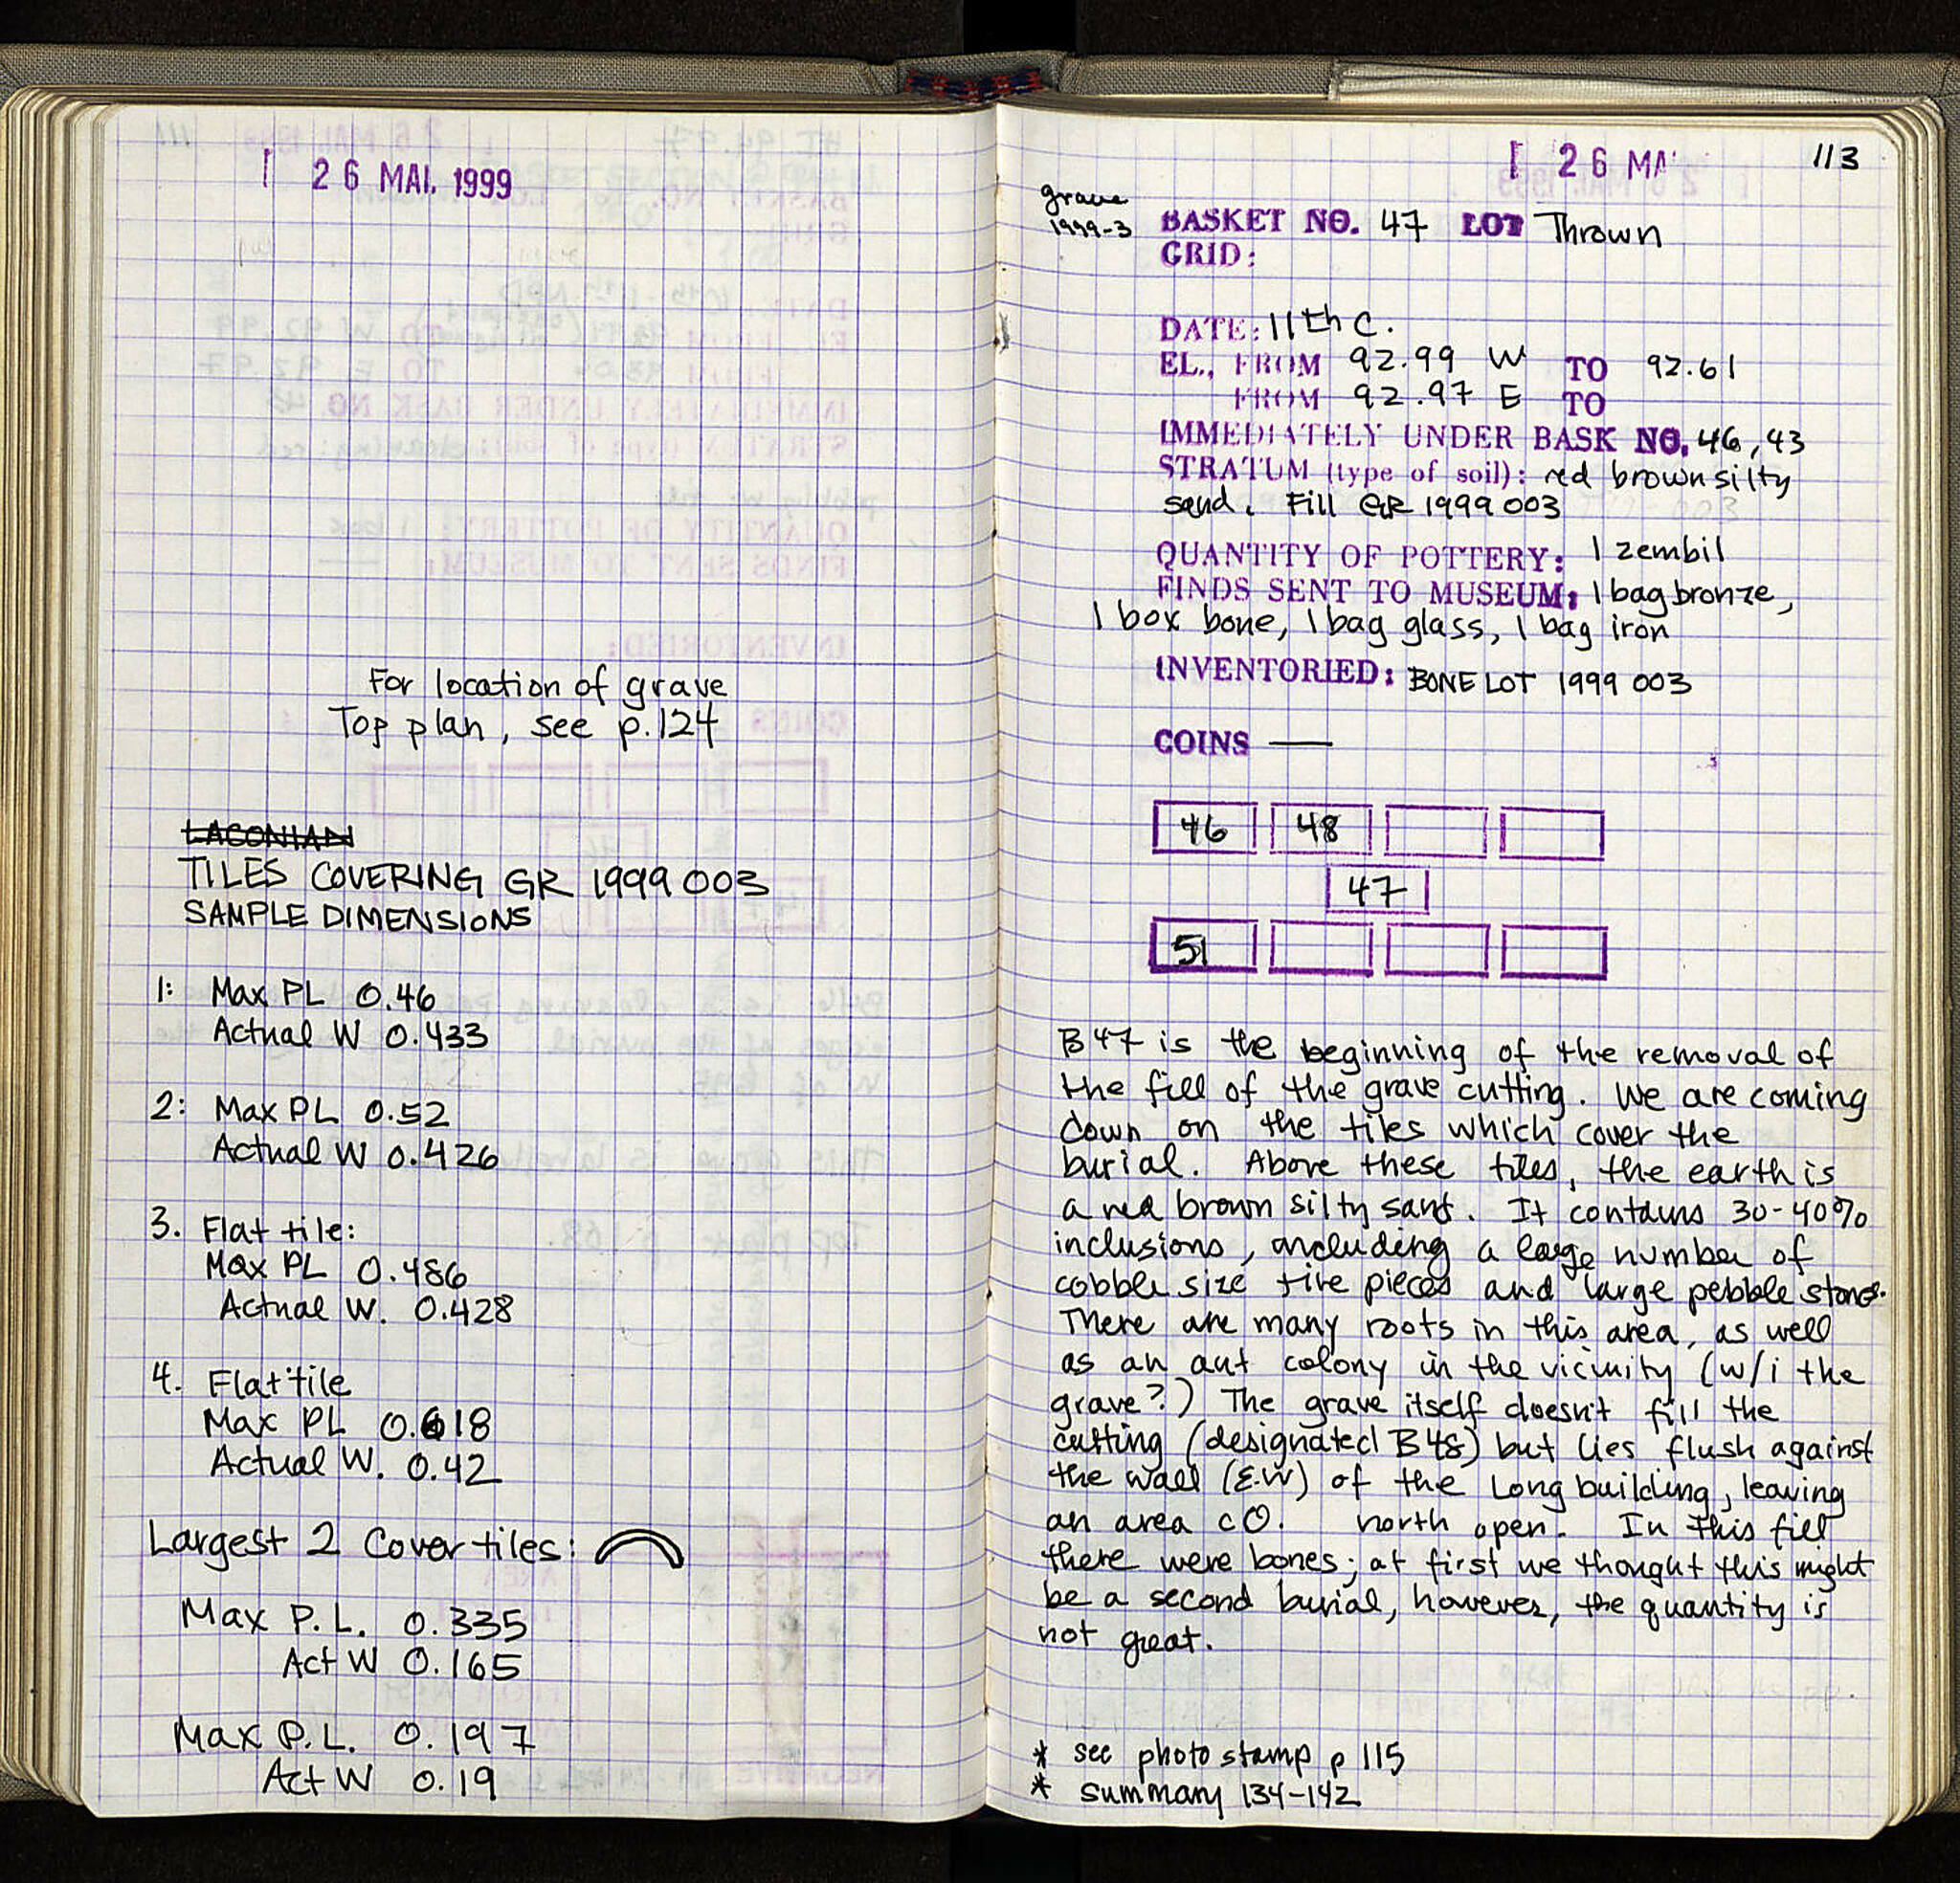 26 MAI. 1999
For location of grave
Top plan, see p.124
LACONIAN
TILES COVERING GR 1999 003
SAMPLE DIMENSIONS
1: Max PL 0.46
Actual W 0.433
2: Max PL 0.52
Actual W 0.426
3. Flat tile:
Max PL 0.486
Actual W. 0.428
4. Flat tile
Max PL 0.618
Actual W. 0.42
Largest 2 Cover tiles:
Max P.L. 0.335
Act W 0.165
Max P.L. 0.197
Act W 0.19
26 MA
113
grave
1999-3
BASKET NO. 47 LOT Thrown
GRID:
DATE: 11th C.
EL., FROM 92.99 W TO 92.61
FROM 92.97 E TO
IMMEDIATELY UNDER BASK NO. 46, 43
STRATUM (type of soil): red brown silty
sand. Fill GR 1999 003
QUANTITY OF POTTERY: 1 zembil
FINDS SENT TO MUSEUM: 1 bag bronze,
1 box bone, 1 bag glass, 1 bag iron
INVENTORIED: BONE LOT 1999 003
COINS —
46 48
47
51
B47 is the beginning of the removal of
the fill of the grave cutting. We are coming
down on the tiles which cover the
burial. Above these tiles, the earth is
a red brown silty sand. It contains 30-40%
inclusions, including a large number of
cobble size tile pieces and large pebble stones.
There are many roots in this area, as well
as an ant colony in the vicinity (w/i the
grave?) The grave itself doesn't fill the
cutting (designated B48) but lies flush against
the wall (E-W) of the Long building, leaving
an area c0. north open. In this fill
there were bones; at first we thought this might
be a second burial, however, the quantity is
not great.
* see photo stamp p 115
* summary 134-142